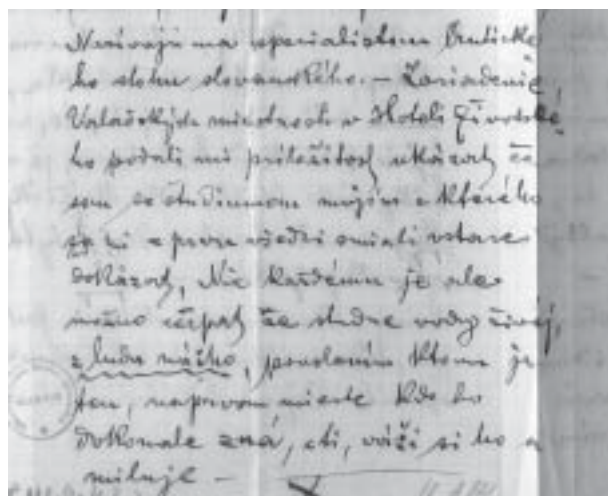 Nazívajú ma specialistom
ho slohu slovanského. – Zariadenie
Valašských miestností v Hoteli
ho podali mi príležitosť ukázať že
som so študiumom mojím z kterého
sa mi z prvu všetci smiali vstave
dokázať, Nie každému je ale
možno čerpať ze studne vody živéj,
z ludu nášho, povolaním ktomu je
ten, na prvom mieste kdo ho
dokonale zná, ctí, váži si ho a
miluje –